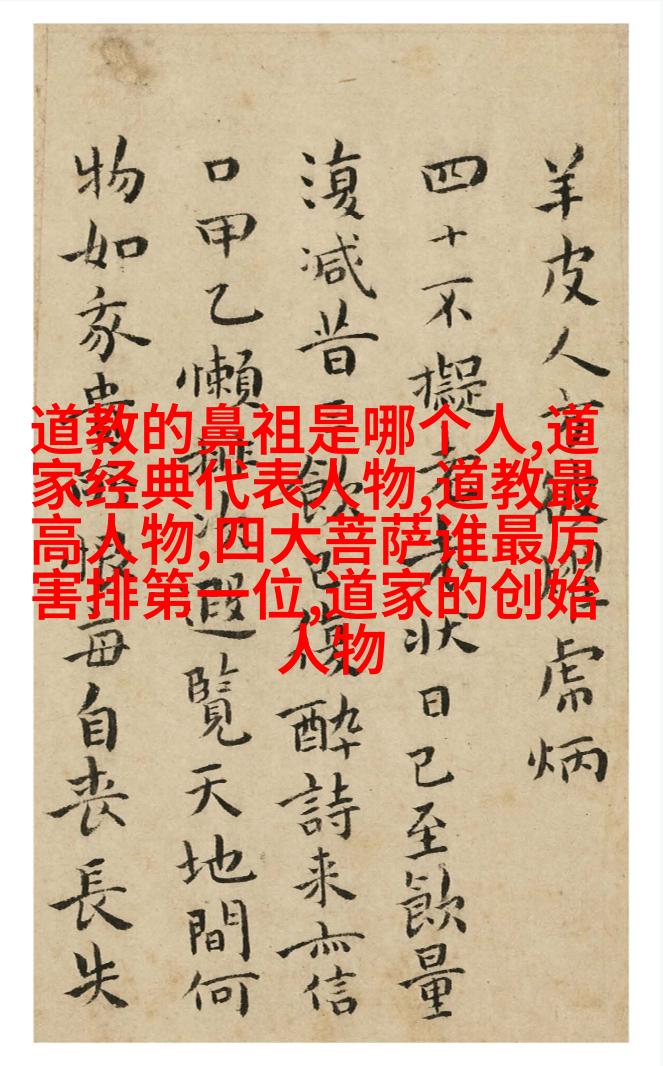 道教的鼻祖是哪个人,道
家经典代表人物,道教最
高人物,四大菩萨谁最厉
害排第一位,道家的创始
人物
羊皮人炳
四十不擬老状日已至飲量
復減昔飲已復酔詩来亦信
口甲乙懶次遐覽天地間何
物如豕每自丧長失